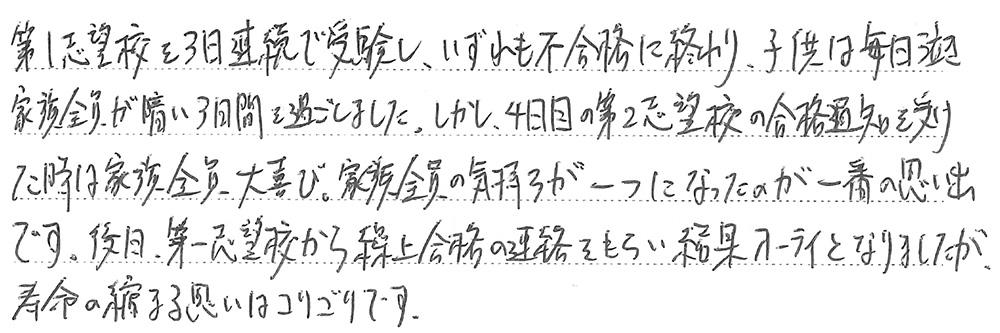 第1志望校を3日連続で受験し、いずれも不合格に終わり、子供は毎日泣き
家族全員が暗い3日間を過ごしました。しかし、4日目の第2志望校の合格通知を受け
た時は家族全員大喜び。家族全員の気持ちが一つになったのが一番の思い出
です。後日、第一志望校から繰上合格の連絡をもらい結果オーライとなりましたが、
寿命の縮まる思いはコリゴリです。